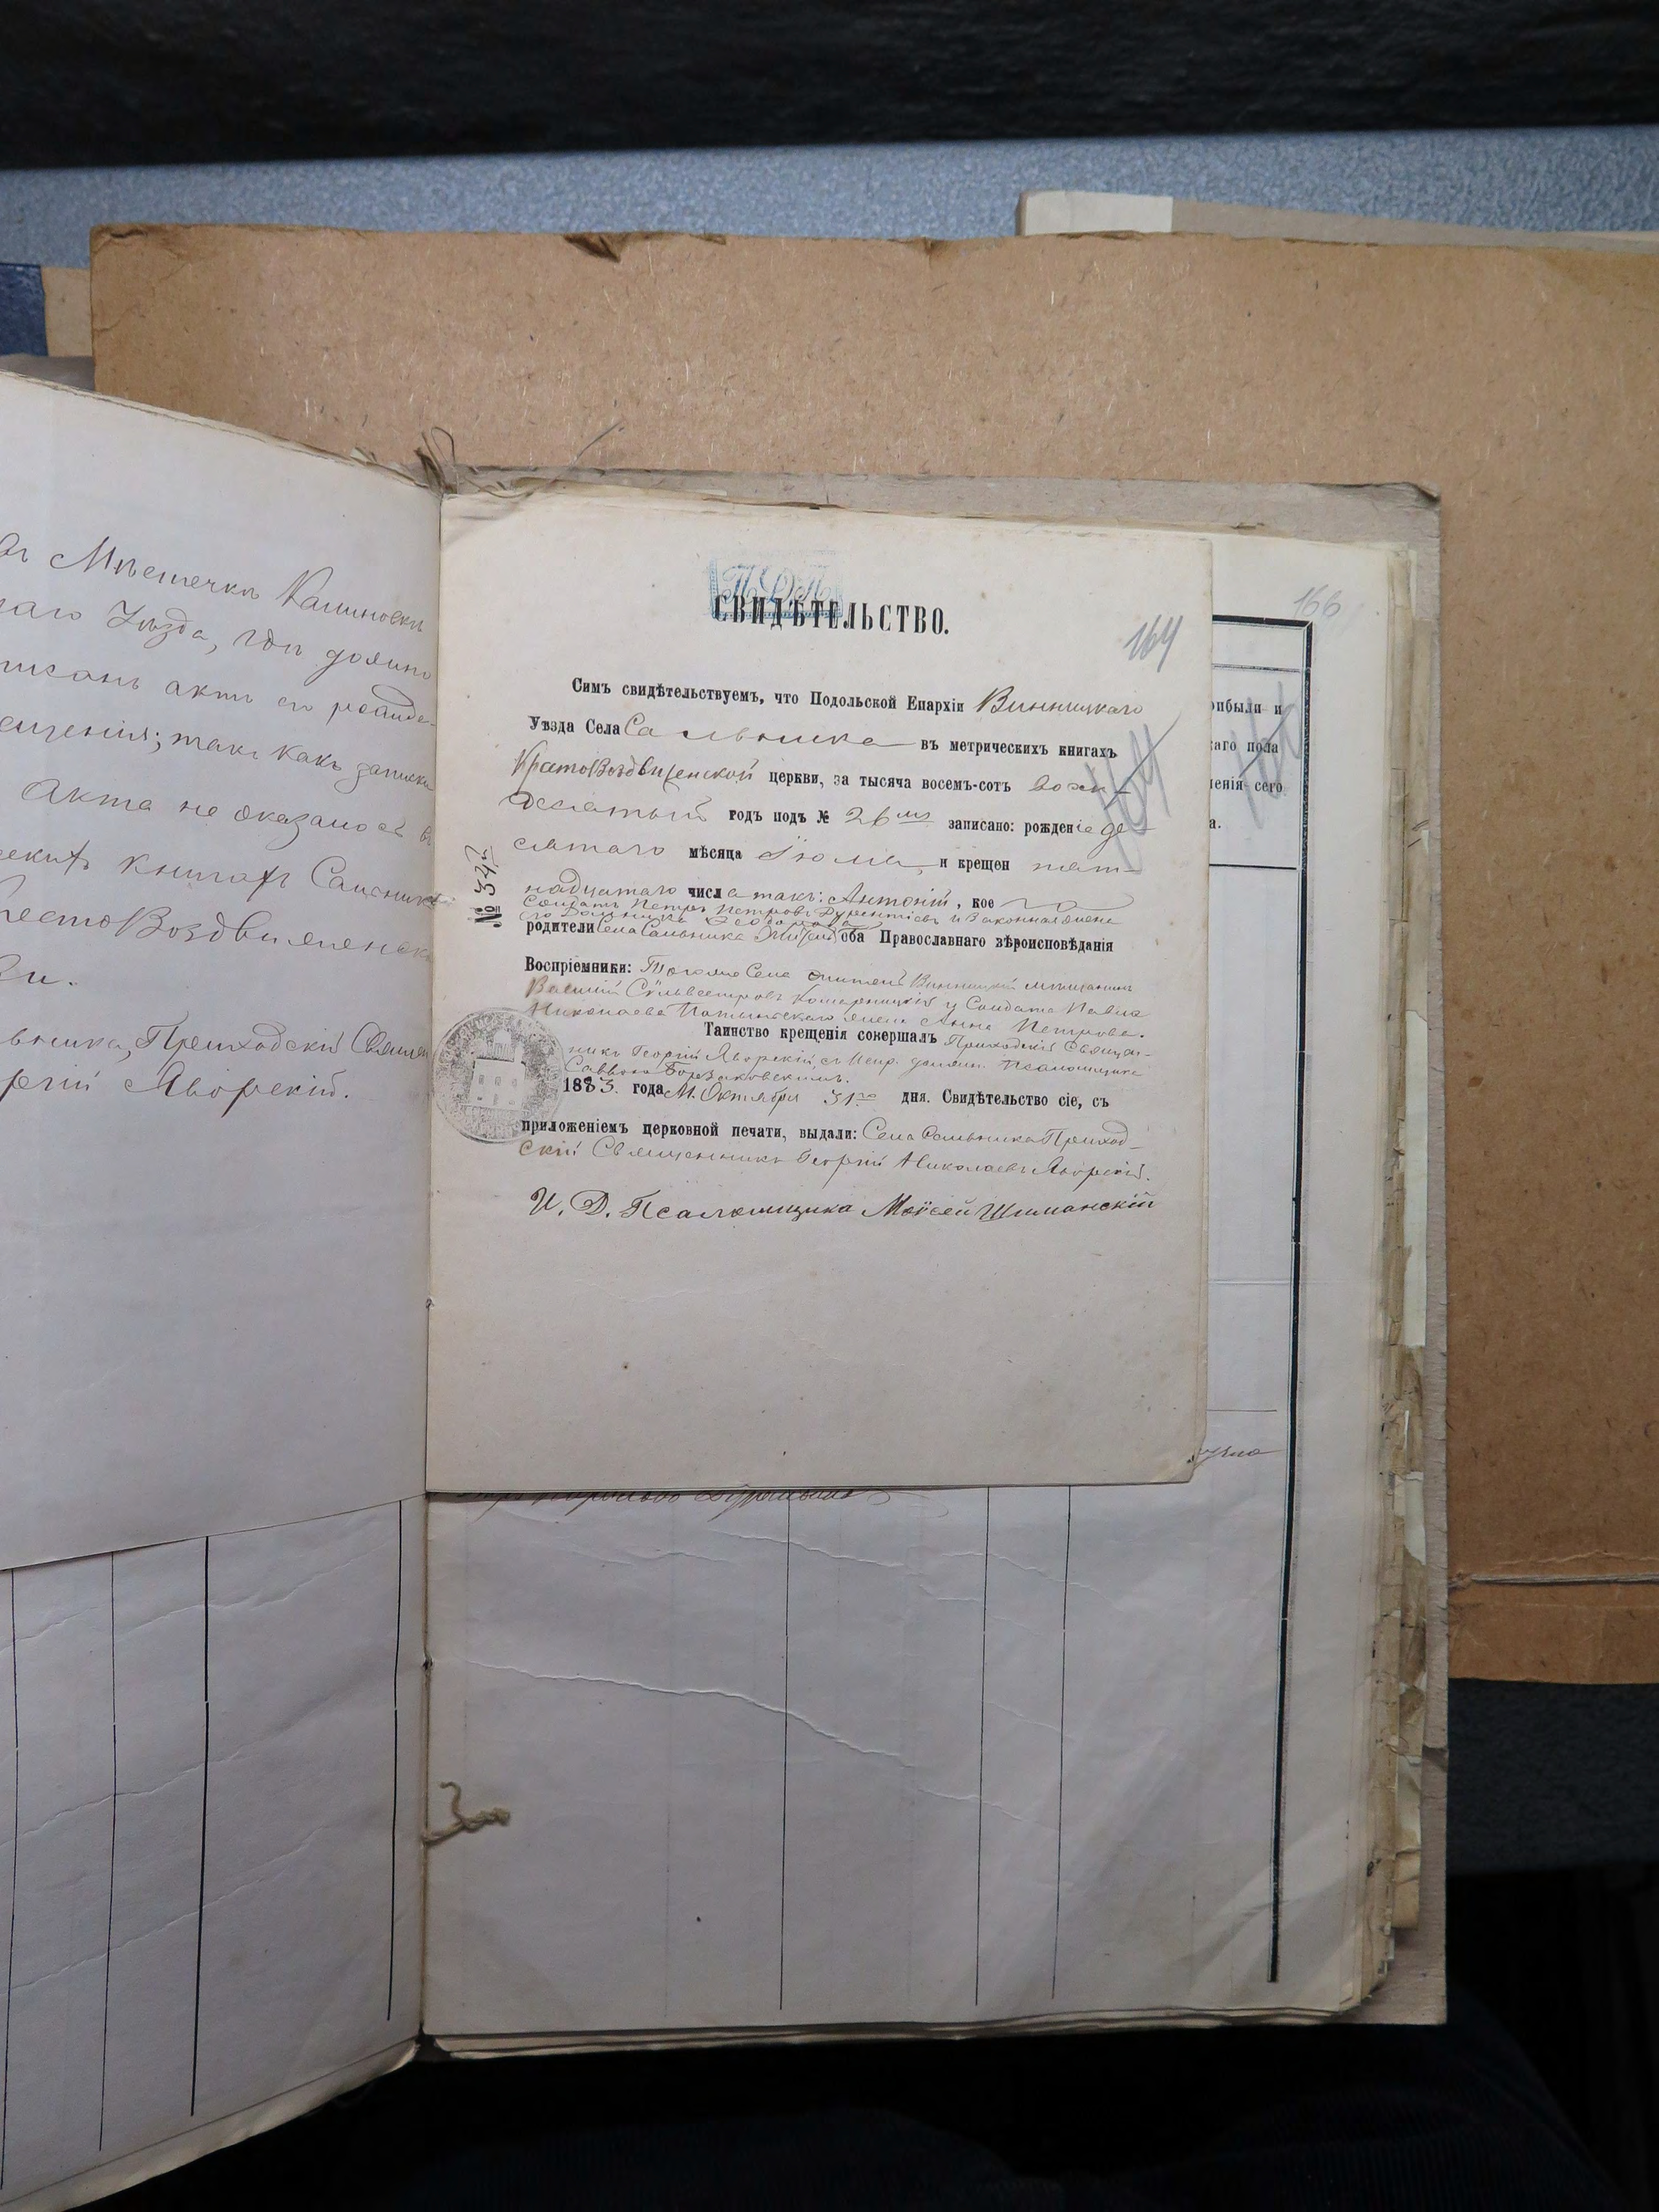 Мѣстечкѣ Калиновкѣ
Уѣзда, гдѣ должно
актъ его рожде-
щенія; такъ какъ записки
Акта не оказалось въ
книгахъ Сальника
Крестовоздвиженск
вника, Приходскій Священ
ргій Яворскій.
П.Д.П.
СВИДѢТЕЛЬСТВО.
164
166
Симъ свидѣтельствуемъ, что Подольской Епархіи Винницкаго
Уѣзда Села Сальника въ метрическихъ книгахъ
КрестоВоздвиженской церкви, за тысяча восемь-сотъ
десятый годъ подъ № 26мъ записано: рожденіе де-
сятаго мѣсяца Іюля, и крещен пят-
надцатаго числа такъ: Антоній, кое го
Солдатъ Петръ Петровъ и Законная жена
родители Села Сальника оба Православнаго вѣроисповѣданія
Воспріемники: Тогоже Села житель Винницкій мѣщанинъ
Василій Сильвестровъ и Солдата Павла
Николаева жена Анна Петрова.
Таинство крещенія совершалъ Приходскій Священ-
никъ Георгій Яворскій, съ Испр. должн. Псаломщика
Саввою
1883. года М. Октября 31го дня. Свидѣтельство сіе, съ
приложеніемъ церковной печати, выдали: Села Сальника Приход-
скій Священникъ Георгій Николаевъ Яворскій.
И. Д. Псаломщика Моѵсей Шиманскій
№ 347
прибыли и
каго пола
ченія сего
а.